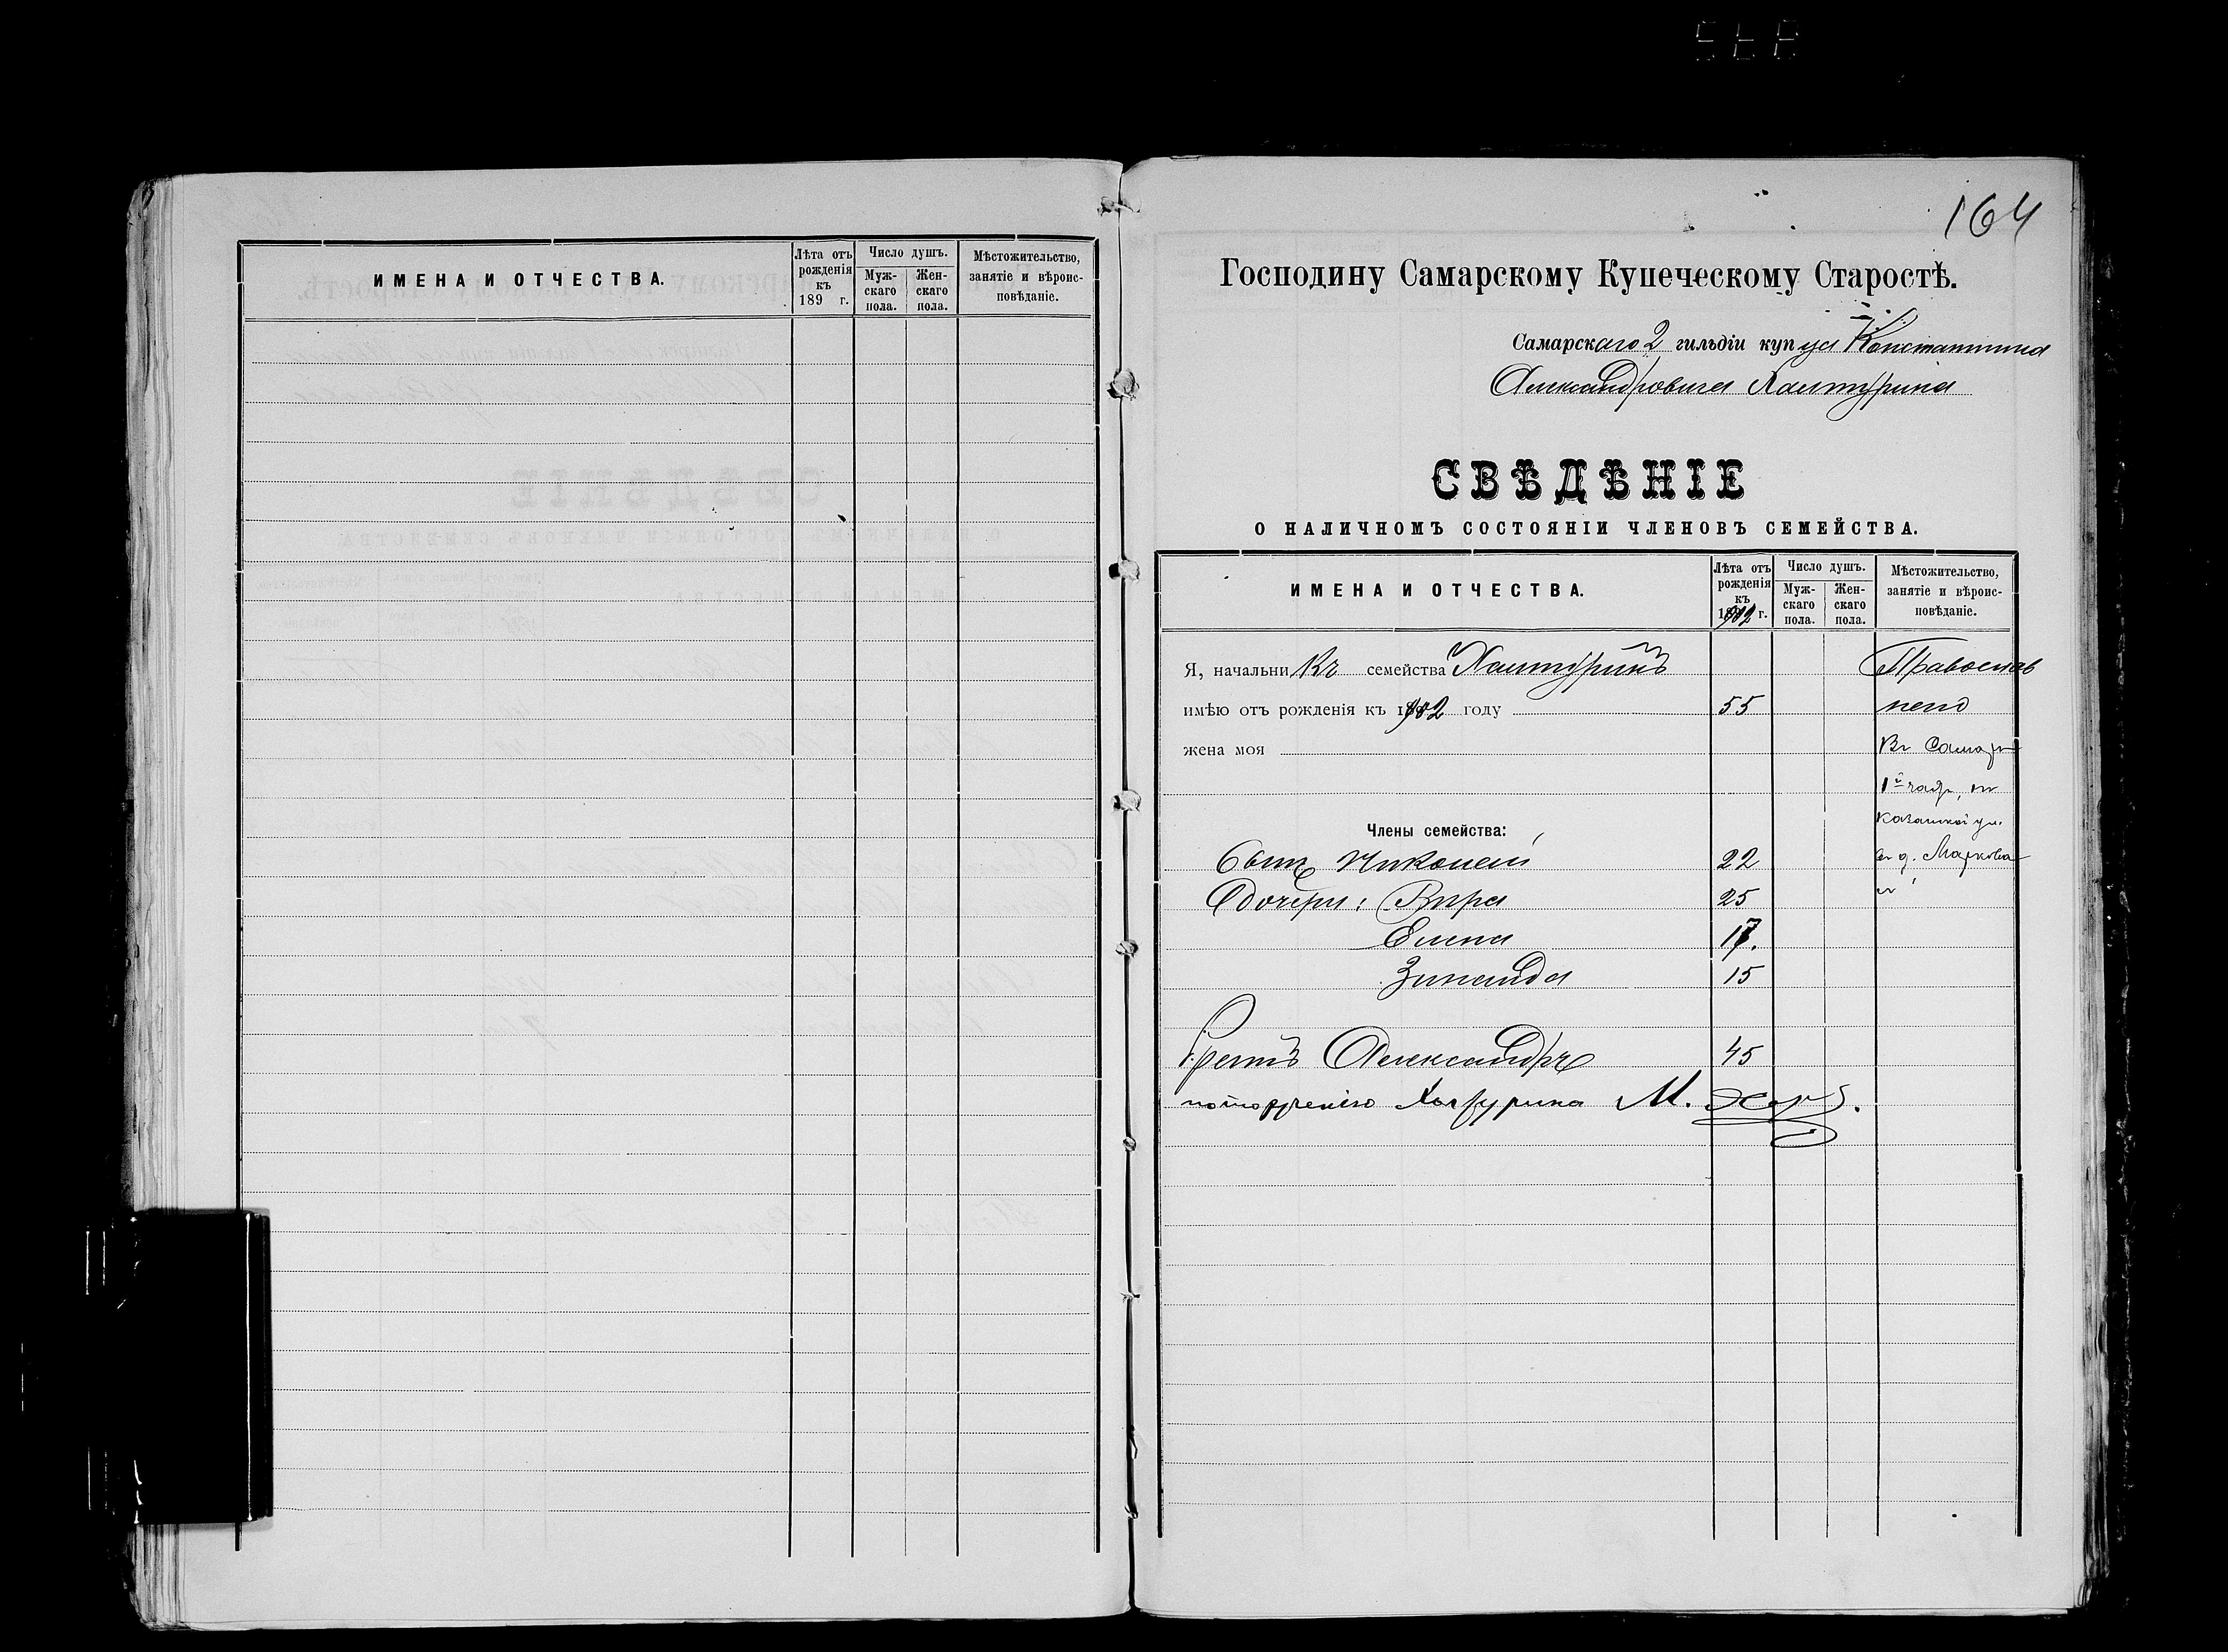 ИМЕНА И ОТЧЕСТВА.
Лѣта отъ рожденія къ 189 г.
Число душъ.
Мужскаго пола.
Женскаго пола.
Мѣстожительство, занятіе и вѣроисповѣданіе.
164
Господину Самарскому Купеческому Старостѣ.
Самарскаго 2 гильдіи купца Константина
Александровича Хаитурина
СВѢДѢНІЕ
О НАЛИЧНОМЪ СОСТОЯНІИ ЧЛЕНОВЪ СЕМЕЙСТВА.
ИМЕНА И ОТЧЕСТВА.
Лѣта отъ рожденія къ 1902 г.
Число душъ.
Муж-скаго пола.
Жен-скаго пола.
Мѣстожительство, занятіе и вѣроис-повѣданіе.
Я, начальникъ семейства Православ
имѣю отъ рожденія къ 1902 году 55
жена моя Въ Самарѣ
1й части, по
Казанской ул.
Члены семейства:
Сынъ Николай 22 д. Маркова
Дочери: Вѣра 25
Елена 17.
Зинаида 15
Братъ Александръ 45
М.